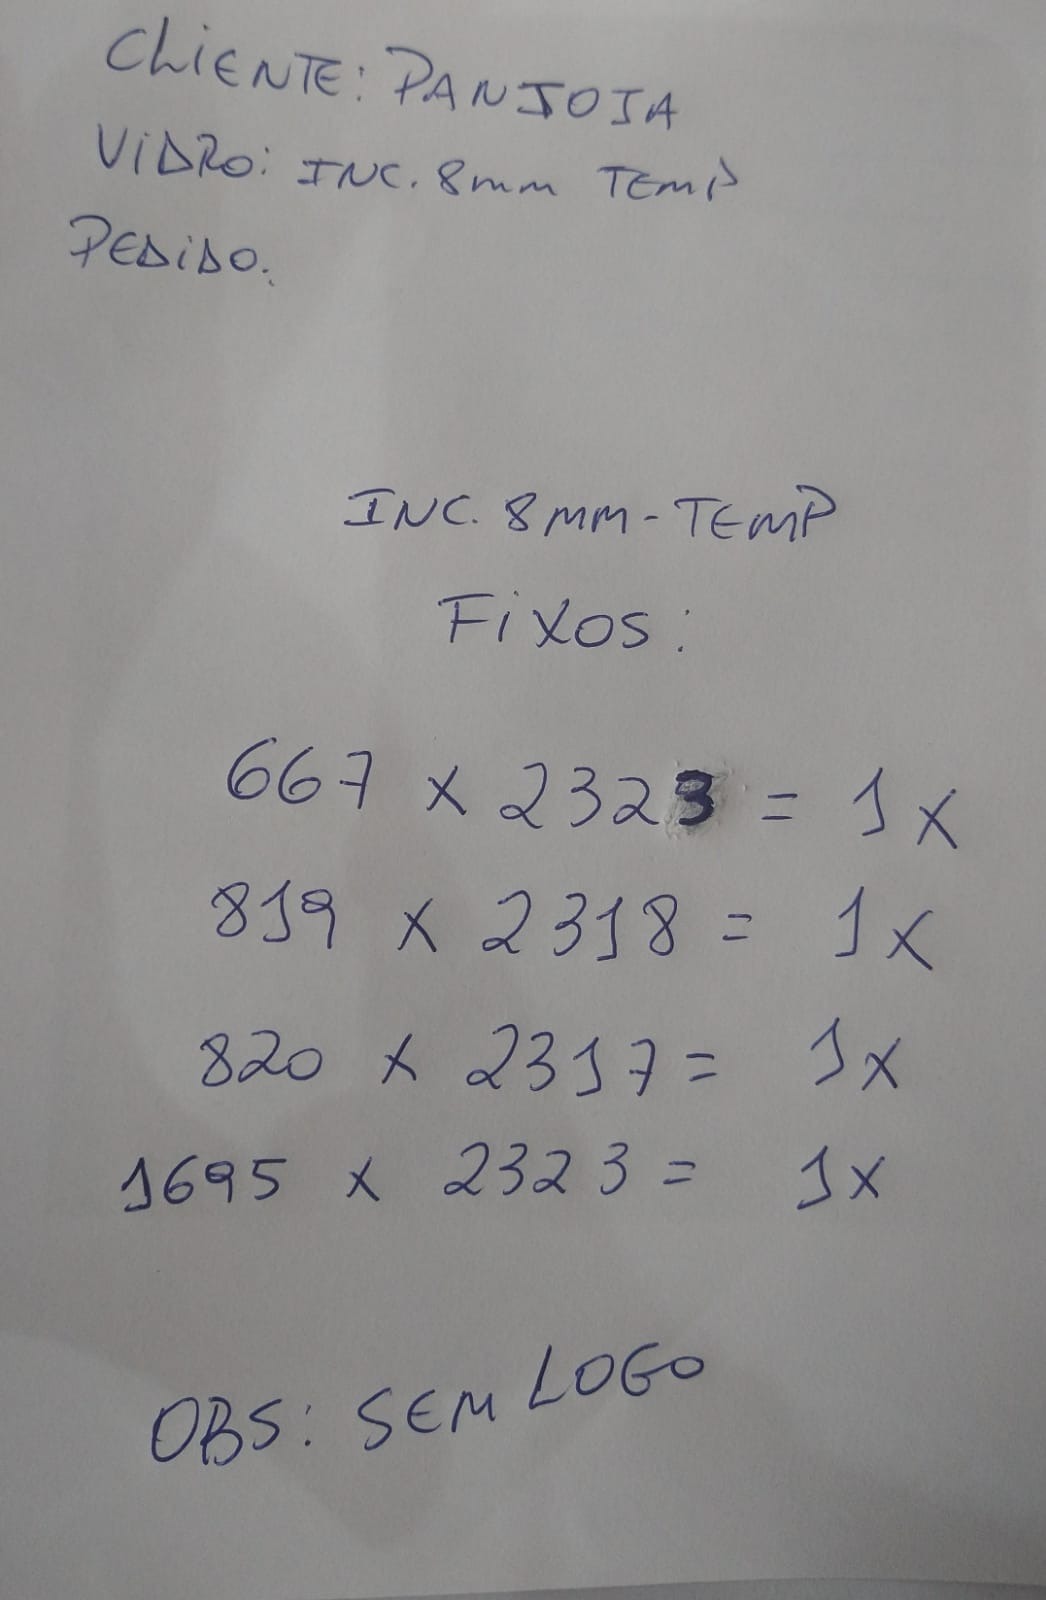 CLIENTE: PANJOIA
VIDRO: INC. 8mm TEMP
PEDIDO.
INC. 8MM-TEMP
FIXOS:
667 x 2323 = 1x
819 x 2318 = 1x
820 x 2317 = 1x
1695 x 2323 = 1x
OBS: SEM LOGO